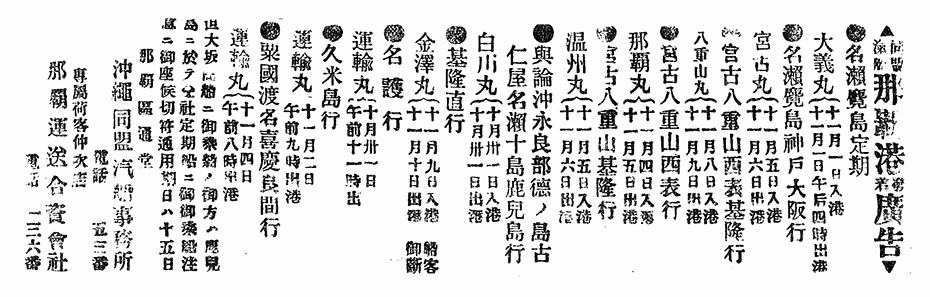 ▲同盟汽船那覇港發着廣告▼
●名瀨鹿兒島定期
大義丸 十一月一日入港 十一月一日午后四時出港
●名瀨鹿兒島神戸大阪行
宮古丸 十一月五日入港 十一月六日出港
●宮古八重山西表基隆行
八重山丸 十一月八日入港 十一月九日出港
●宮古八重山西表行
那覇丸 十一月四日入港 十一月五日出港
●宮古八重山基隆行
温州丸 十一月五日入港 十一月六日出港
●與論沖永良部德ノ島古
仁屋名瀨十島鹿兒島行
白川丸 十月卅一日入港 十月卅一日出港
●基隆直行
金澤丸 十一月九日入港 十一月十日出港 船客御斷
●名護行
運輸丸 十月卅一日 午前十一時出
●久米島行
運輸丸 十一月二日 午前九時出港
●粟國渡名喜慶良間行
運輸丸 十一月四日 午前八時出港
但大坂 船ニ御乘船ノ御方ハ鹿兒
島ニ於テ 社定期船ニ御 乘船注
意ニ御座候切符通用期日ハ十五日
那覇區通堂
沖繩同盟汽船事務所
電話 五三番
專屬荷客仲次店
那覇運送合資會社
電話 一三六番